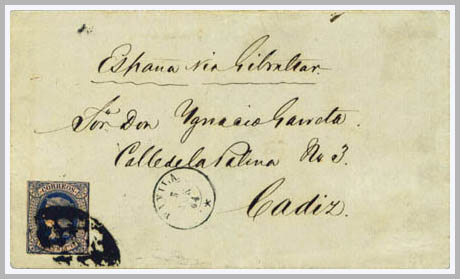 España via Gibraltar.
Sor. Don Ygnacio Garreta.
Calle de la Palma No 3.
Cadiz.
CORREOS
MANILA